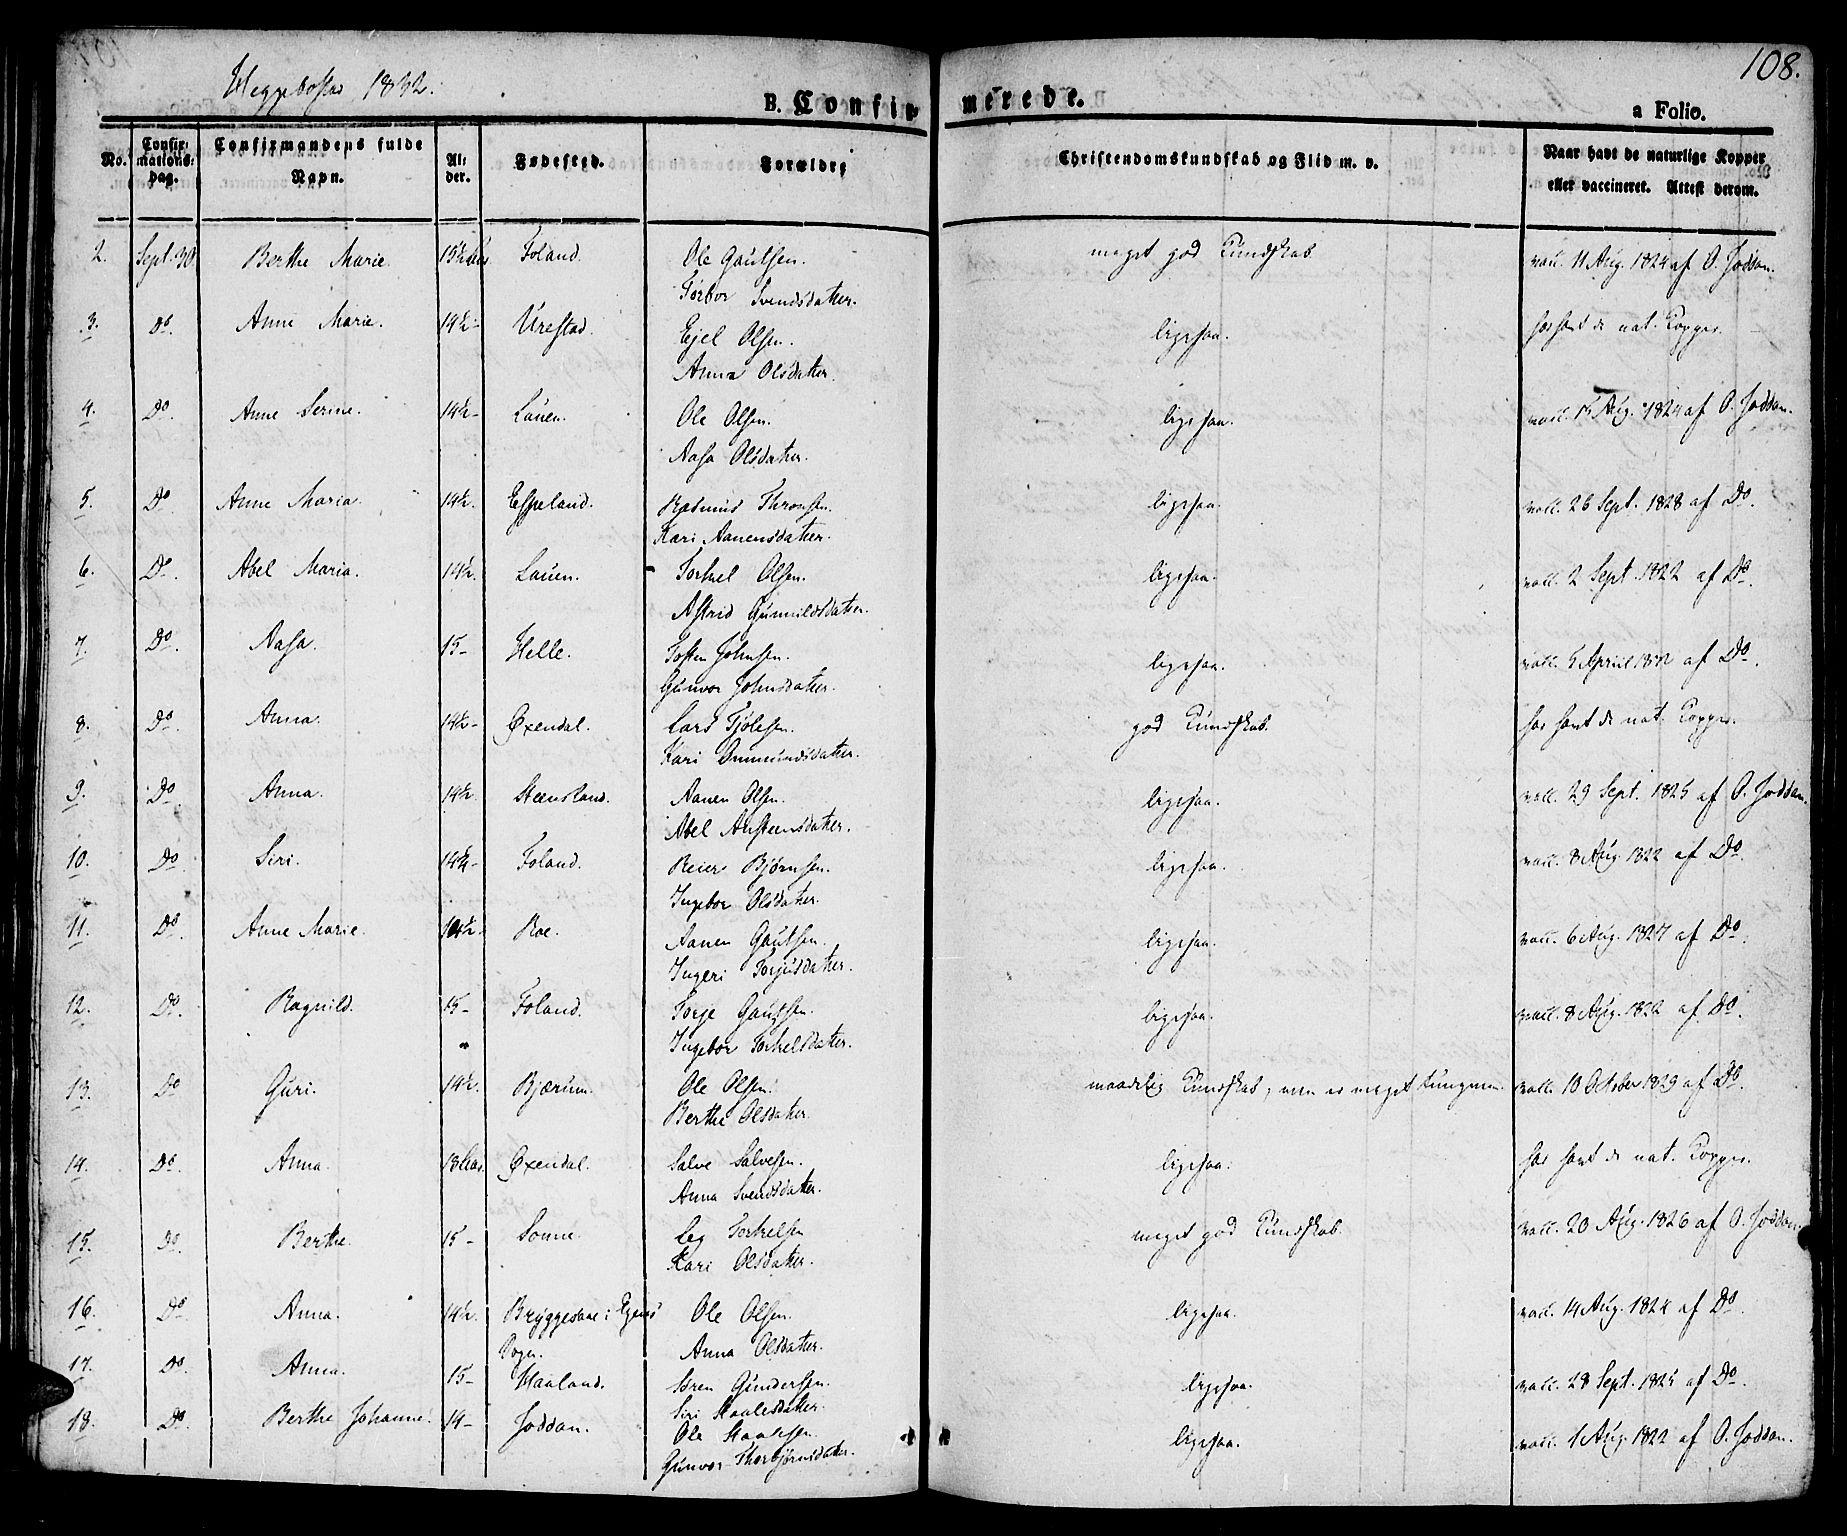 108.
Heggebostad 1832.
B. Confirmerede.
a Folio.
No. Confirmations: dag. Confirmandens fulde Navn. Alder. Fødested. Forældre Christendomskundskab og Flid m. v. Naar havt de naturlige Kopper eller vaccineret. Attest derom.
2. Sept. 30 Berthe Marie. 15½ Aar Foland. Ole Gautsen. meget god Kundskab. vacc. 11 Aug. 1824 af O. Joddan.
Torbor Svendsdatter.
3. Do. Anne Marie. 14½- Urestad. Ejel Olsen. ligesaa. har havt de nat. Kopper.
Anna Olsdatter.
4. Do. Anne Serine. 14½- Lauen. Ole Olsen. ligesaa. vacc. 15 Aug. 1824 af O. Joddan.
Aasa Olsdatter.
5. Do Anne Maria. 14½. Espeland. Rasmus Thronsen. ligesaa. vacc. 26 Sept. 1828 af Do.
Kari Aanensdatter.
6. Do. Abel Maria. 14½. Lauen. Torkel Olsen. ligesaa. vacc. 2 Sept. 1822 af Do.
Astrid Gunnildsdatter.
7. Do. Aasa. 15- Helle. Tosten Johnsen. ligesaa. vacc. 5 April 1832 af Do.
Gunvor Johnsdatter.
8. Do. Anna. 14½- Øxendal. Lars Tjølesen. god Kundskab. har havt de nat. Kopper.
Kari Ommundsdatter.
9. Do. Anna. 14½. Steensland. Aanen Olsen. ligesaa. vacc. 29 Sept. 1825 af O. Joddan.
Abel Austeensdatter.
10. Do. Siri. 14¼- Foland. Reier Bjørnsen. ligesaa. vacc. 8 Aug. 1822 af Do.
Ingebor Olsdatter.
11. Do. Anne Marie. 14½. Roe. Aanen Gautsen. ligesaa. vacc. 6 Aug. 1827 af Do.
Ingeri Torjusdatter.
12. Do. Ragnild. 15- Foland. Torje Gautsen. ligesaa. vacc. 8 Aug. 1822 af Do.
Ingebor Torkelsdatter.
13. Do Guri. 14½. Bjærum. Ole Olsen. maadelig Kundskab, men er meget tungnem. vacc. 10 October 1829 af Do.
Berthe Olsdatter.
14. Do. Anna. 18 Aar. Øxendal. Salve Salvesen. ligesaa. har havt de nat. Kopper.
Anna Svendsdatter.
15. Do. Berthe. 15- Sonne. Leg Torkelsen meget god Kundskab. vacc. 20 Aug. 1826 af O. Joddan.
Kari Olsdatter.
16. Do. Anna. 14½. Bryggesaae i Egens Ole Olsen. ligesaa. vacc. 14 Aug. 1824 af Do.
Sogn. Anna Olsdatter.
17. Do. Anna. 15- Haaland. Søren Gundersen. ligesaa. vacc. 28 Sept. 1825 af Do.
Siri Staalesdatter.
18. Do. Berthe Johanne. 14- Joddan. Ole Staalesen. ligesaa. vacc. 1 Aug. 1822 af O. Joddan.
Gunvor Thorbjørnsdatter.